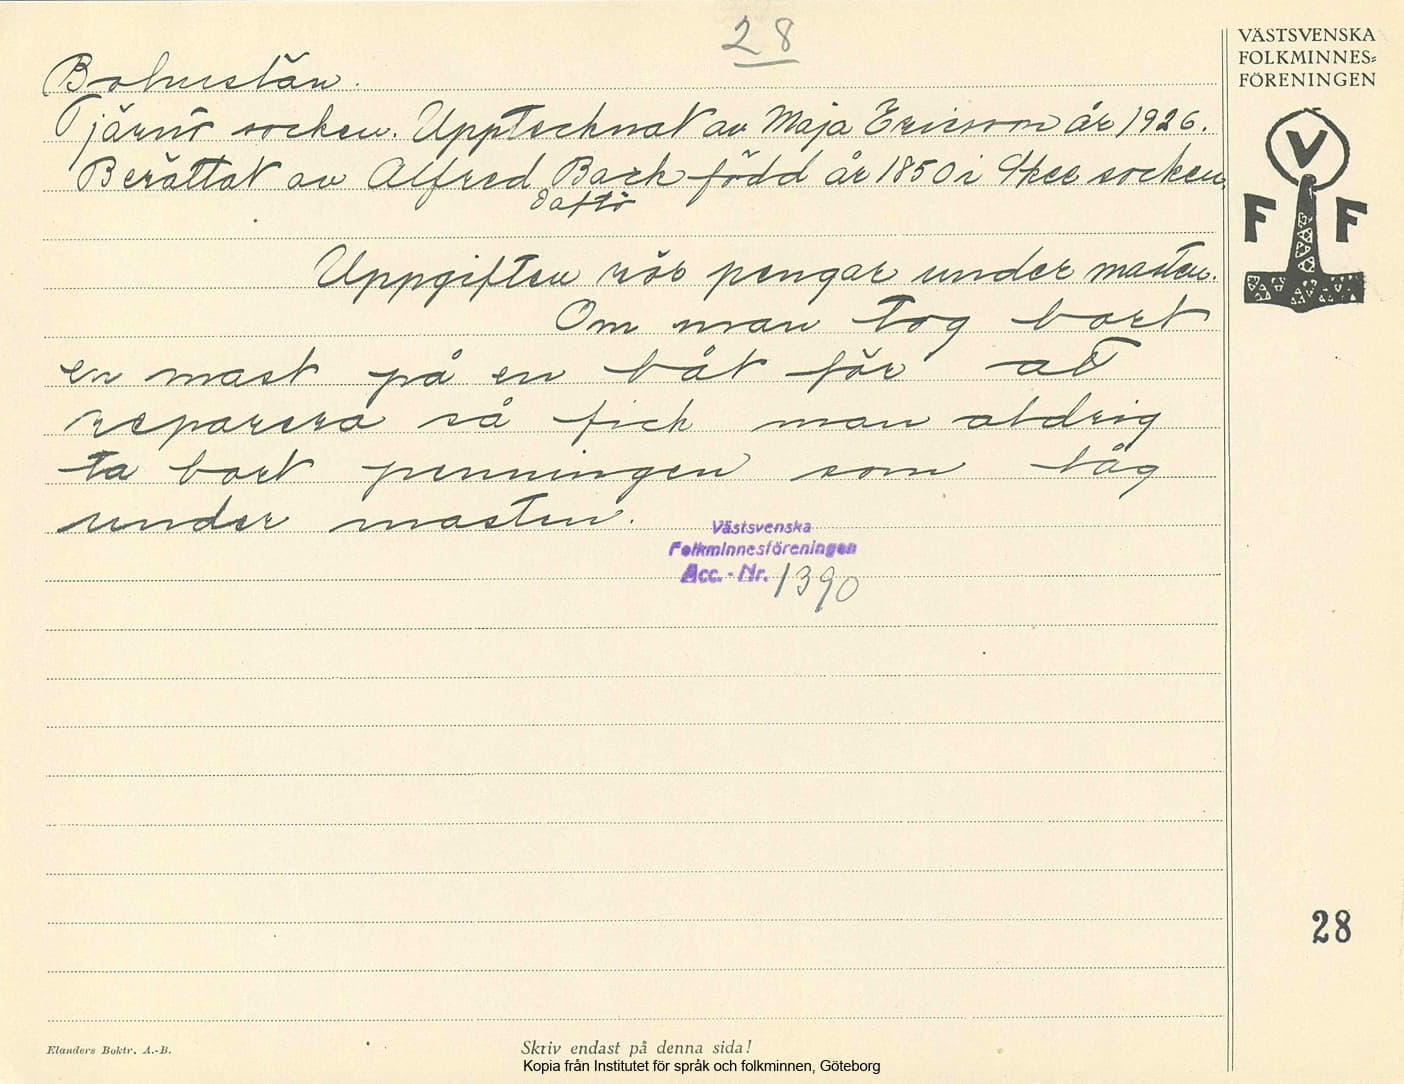 28
VÄSTSVENSKA
FOLKMINNES=
FÖRENINGEN
V
F F
Bohuslän.
Tjärnö socken. Upptecknat av Maja Ericson år 1926.
Berättat av Alfred Back född år 1850 i Skee socken.
Saltö
Uppgiften rör pengar under masten.
Om man tog bort
en mast på en båt för at
reparera så fick man aldrig
ta bort penningen som låg
under masten.
Västsvenska
Folkminnesföreningen
Acc. - Nr. 1390
28
Elanders Boktr. A.-B.
Skriv endast på denna sida!
Kopia från Institutet för språk och folkminnen, Göteborg